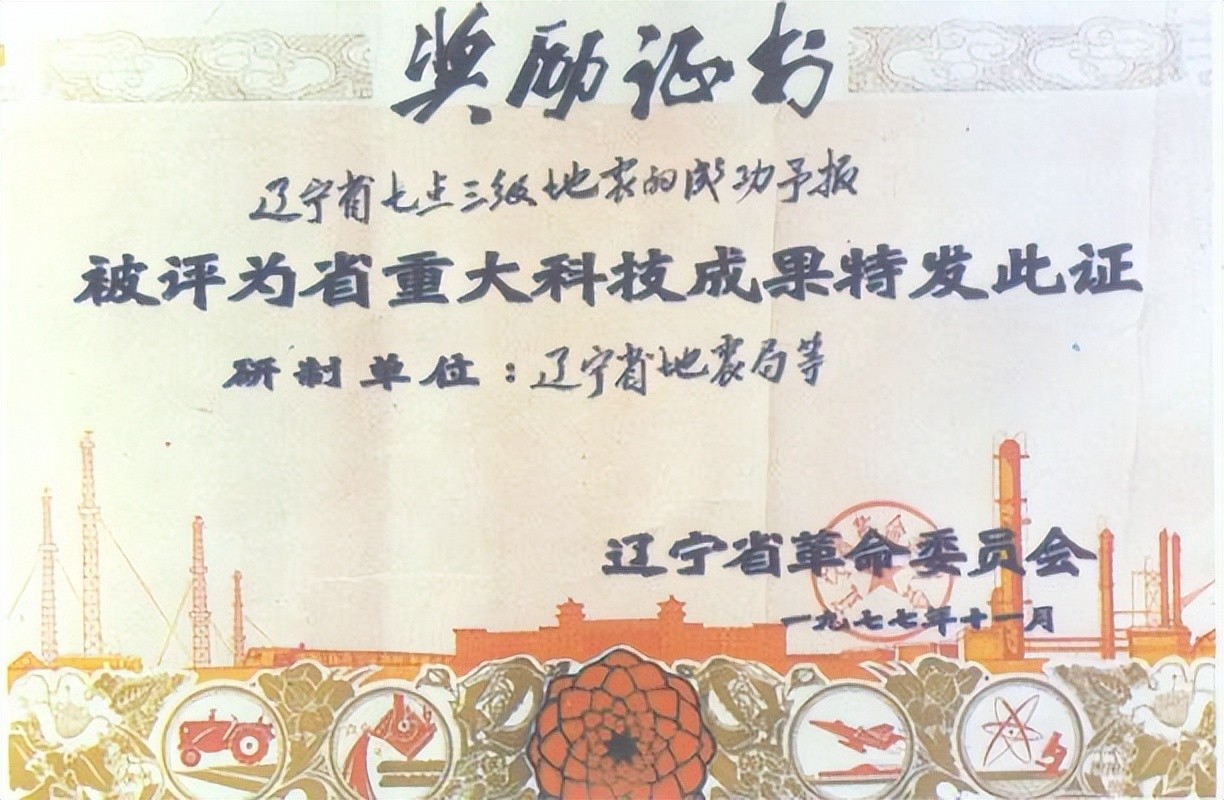 奖励证书
辽宁省七点三级地震的成功予报
被评为省重大科技成果特发此证
研制单位：辽宁省地震局等
辽宁省革命委员会
一九七七年十一月